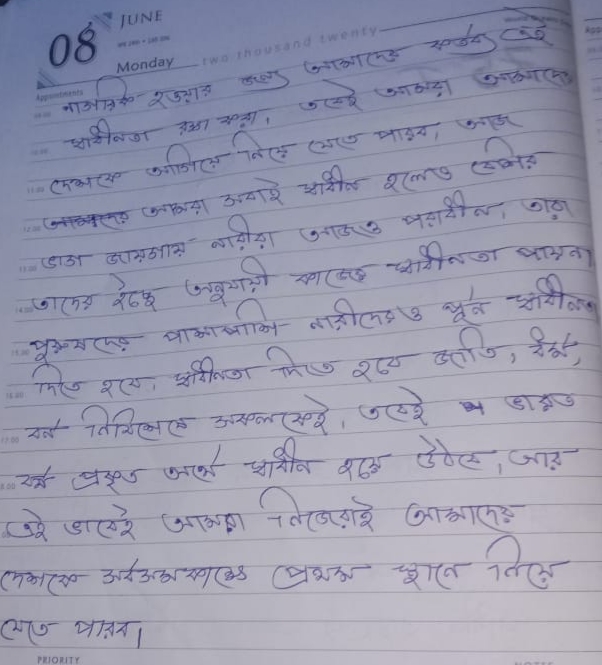 08 JUNE
Monday two thousand twenty
Appointments
নাগরিক হওয়ার জন্য আমাদের কর্তব্য এই
স্বাধীনতা রক্ষা করা, তবেই আমরা আমাদের
দেশকে এগিয়ে নিয়ে যেতে পারব, আজ
আমরা সবাই স্বাধীন হলেও বেশির
ভাগ জায়গায় নারীরা আজও পরাধীন, তারা
তাদের ইচ্ছে অনুযায়ী কাজের স্বাধীনতা পায়না
পুরুষদের পাশাপাশি নারীদেরও পূর্ন স্বাধীনতা
দিতে হবে, স্বাধীনতা দিতে হবে জাতি, ধর্ম,
বর্ন নির্বিশেষে সকলকেই, তবেই ভারত
বর্ষ প্রকৃত অর্থে স্বাধীন হয়ে উঠবে, আর
এই ভাবেই আমরা নিজেরাই আমাদের
দেশকে সর্বসমক্ষে প্রথম স্থানে নিয়ে
যেতে পারব,
PRIORITY
NOTES